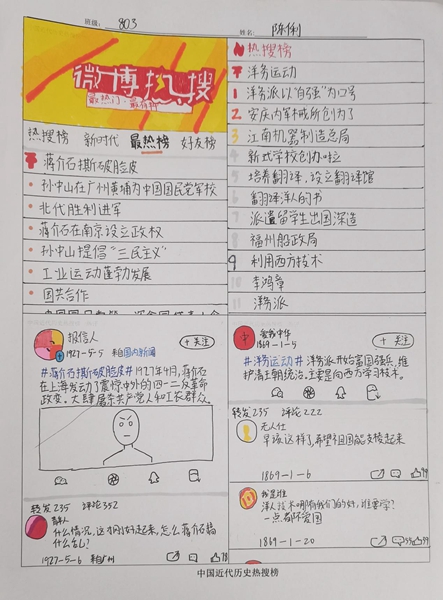 班级: 803
姓名: 陈俐
微博热搜
最热门·最有料
热搜榜 新时代 最热榜 好友榜
蒋介石撕破脸皮
孙中山在广州黄埔为中国国民党军校
北伐胜利进军
蒋介石在南京设立政权
孙中山提倡“三民主义”
工业运动蓬勃发展
国共合作
热搜榜
洋务运动
1 洋务派以“自强”为口号
2 安庆内军械所创办了
3 江南机器制造总局
4 新式学校创办啦
5 培养翻译,设立翻译馆
6 翻译洋人的书
7 派遣留学生出国深造
8 福州船政局
9 利用西方技术
10 李鸿章
11 洋务派
报信人
1927-5-5 来自国内新闻
+关注
#蒋介石撕破脸皮#1927年4月,蒋介石
在上海发动了震惊中外的四一二反革命
政变。大肆屠杀共产党人和工农群众。
转发235 评论352
什么情况,这才刚好起来,怎么蒋介石搞
什么乱?
1927-5-6 来自广州
爱我中华
1869-1-5
+关注
#洋务运动# 洋务派开始富国强兵,维
护清王朝统治。主要是向西方学习技术。
转发235 评论222
无人仕
早该这样了,希望祖国能支棱起来
1869-1-6
我是谁
洋人技术哪有我们的好,谁要学?
一点都不爱国
1869-1-20
中国近代历史热搜榜